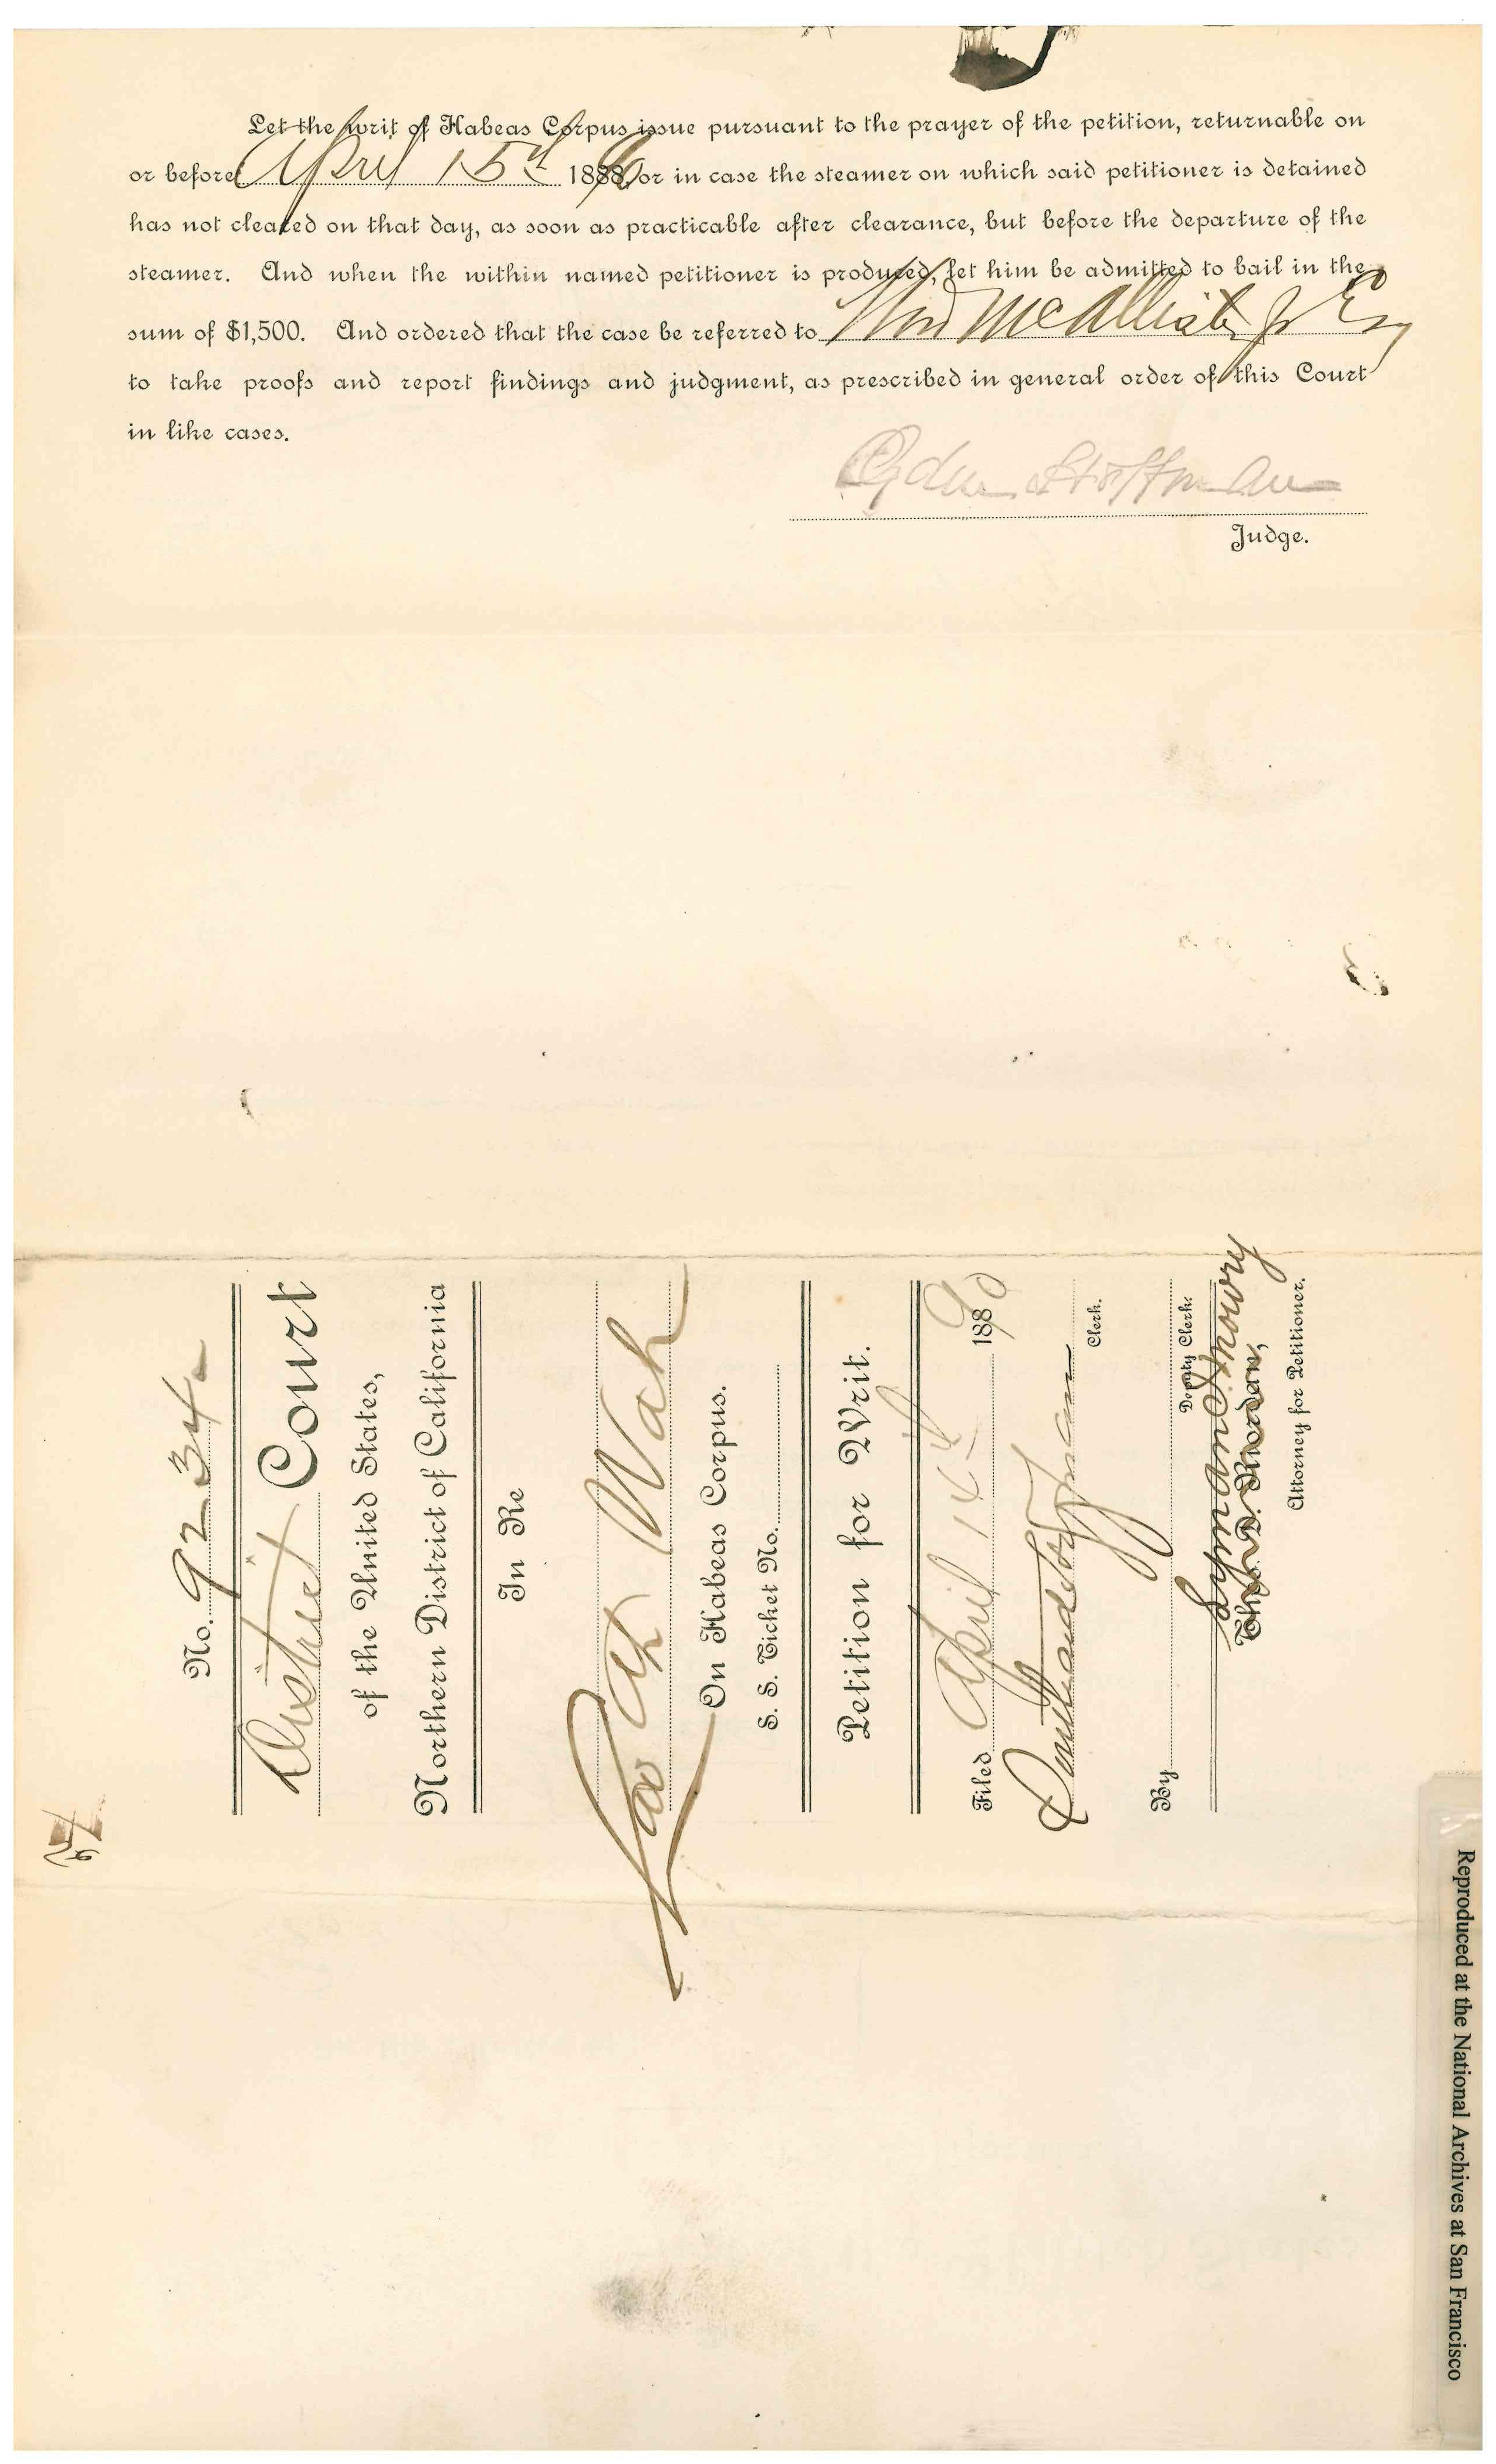 Let the writ of Habeas Corpus issue pursuant to the prayer of the petition, returnable on
or before April 15th 1890, or in case the steamer on which said petitioner is detained
has not cleared on that day, as soon as practicable after clearance, but before the departure of the
steamer. And when the within named petitioner is produced, let him be admitted to bail in the
sum of $1,500. And ordered that the case be referred to Ward McAllister Jr Esq
to take proofs and report findings and judgment, as prescribed in general order of this Court
in like cases.
Ogden Hoffman
Judge.
No. 9234
District Court
of the United States,
Northern District of California
In Re
Kao Ah Wah
On Habeas Corpus.
S. S. Ticket No.
Petition for Writ.
Filed April 14th 1890
Southard Hoffman
Clerk.
By
Deputy Clerk.
Attorney for Petitioner.
Reproduced at the National Archives at San Francisco